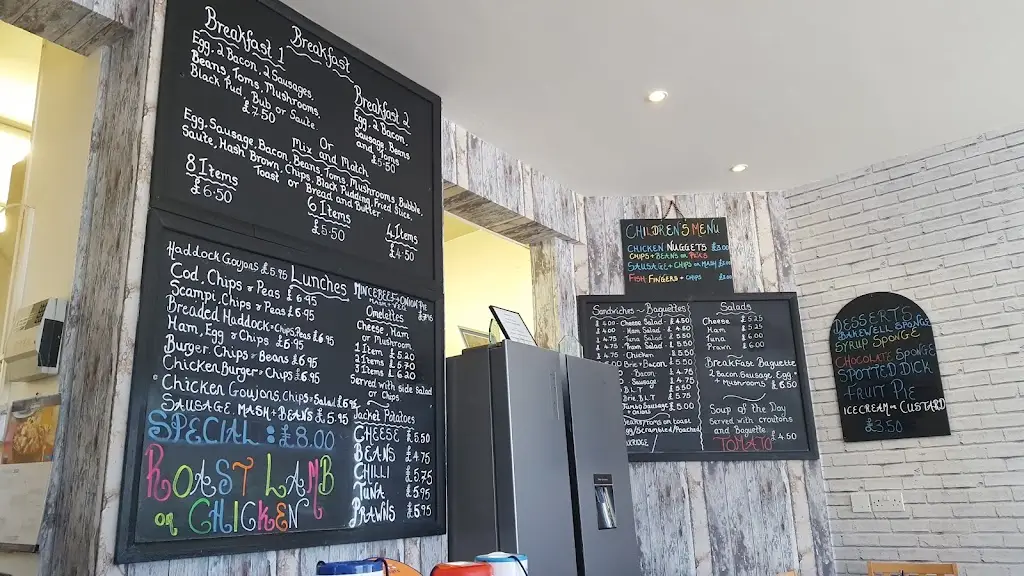 Breakfast
Breakfast 1
Egg, 2 Bacon, 2 Sausages,
Beans, Toms, Mushrooms,
Black Pud, Bub or Saute
£7.50
Breakfast 2
Egg, 2 Bacon,
Sausage, Beans
and Toms
£5.50
Or
Mix and Match
Egg, Sausage, Bacon, Beans, Toms, Mushrooms, Bubble,
Saute, Hash Brown, Chips, Black Pudding, Fried Slice
Toast or Bread and Butter
8 Items
£6.50
6 Items
£5.50
4 Items
£4.50
Lunches
Haddock Goujons £5.95
Cod, Chips & Peas £6.95
Scampi, Chips & Peas £6.95
Breaded Haddock & Chips Peas £6.95
Ham, Egg & Chips £6.95
Burger, Chips & Beans £6.95
Chicken Burger & Chips £6.95
Chicken Goujons, Chips & Salad £6.95
Sausage, Mash & Beans £5.95
SPECIAL: £8.00
ROAST LAMB
or CHICKEN
Omelettes
Cheese, Ham
or Mushroom
1 Item £5.20
2 Items £5.70
3 Items £6.20
Served with side salad
or Chips
Jacket Potatoes
CHEESE £5.50
BEANS £4.75
CHILLI £5.75
TUNA £5.95
PRAWNS £5.95
CHILDREN'S MENU
CHICKEN NUGGETS £3.00
CHIPS & BEANS OR PEAS
SAUSAGE & CHIPS OR MASH
FISH FINGERS & CHIPS
Sandwiches ~ Baguettes
Cheese Salad £4.50
Ham Salad
Tuna Salad
Prawn Salad
Chicken £5.50
Brie & Bacon
BLT
Sausage
BLT
Jumbo Sausage
& onions
Beans/Toms on toast
Egg/Scrambled/Poached
Salads
Cheese £5.25
Ham
Tuna £6.00
Prawn £6.00
Breakfast Baguette
Bacon, Sausage, Egg &
Mushrooms £6.50
Soup of the Day
Served with croutons
and Baguette £4.50
TOMATO
DESSERTS
BAKEWELL SPONGE
SYRUP SPONGE
CHOCOLATE SPONGE
SPOTTED DICK
FRUIT PIE
ICE CREAM or CUSTARD
£3.50